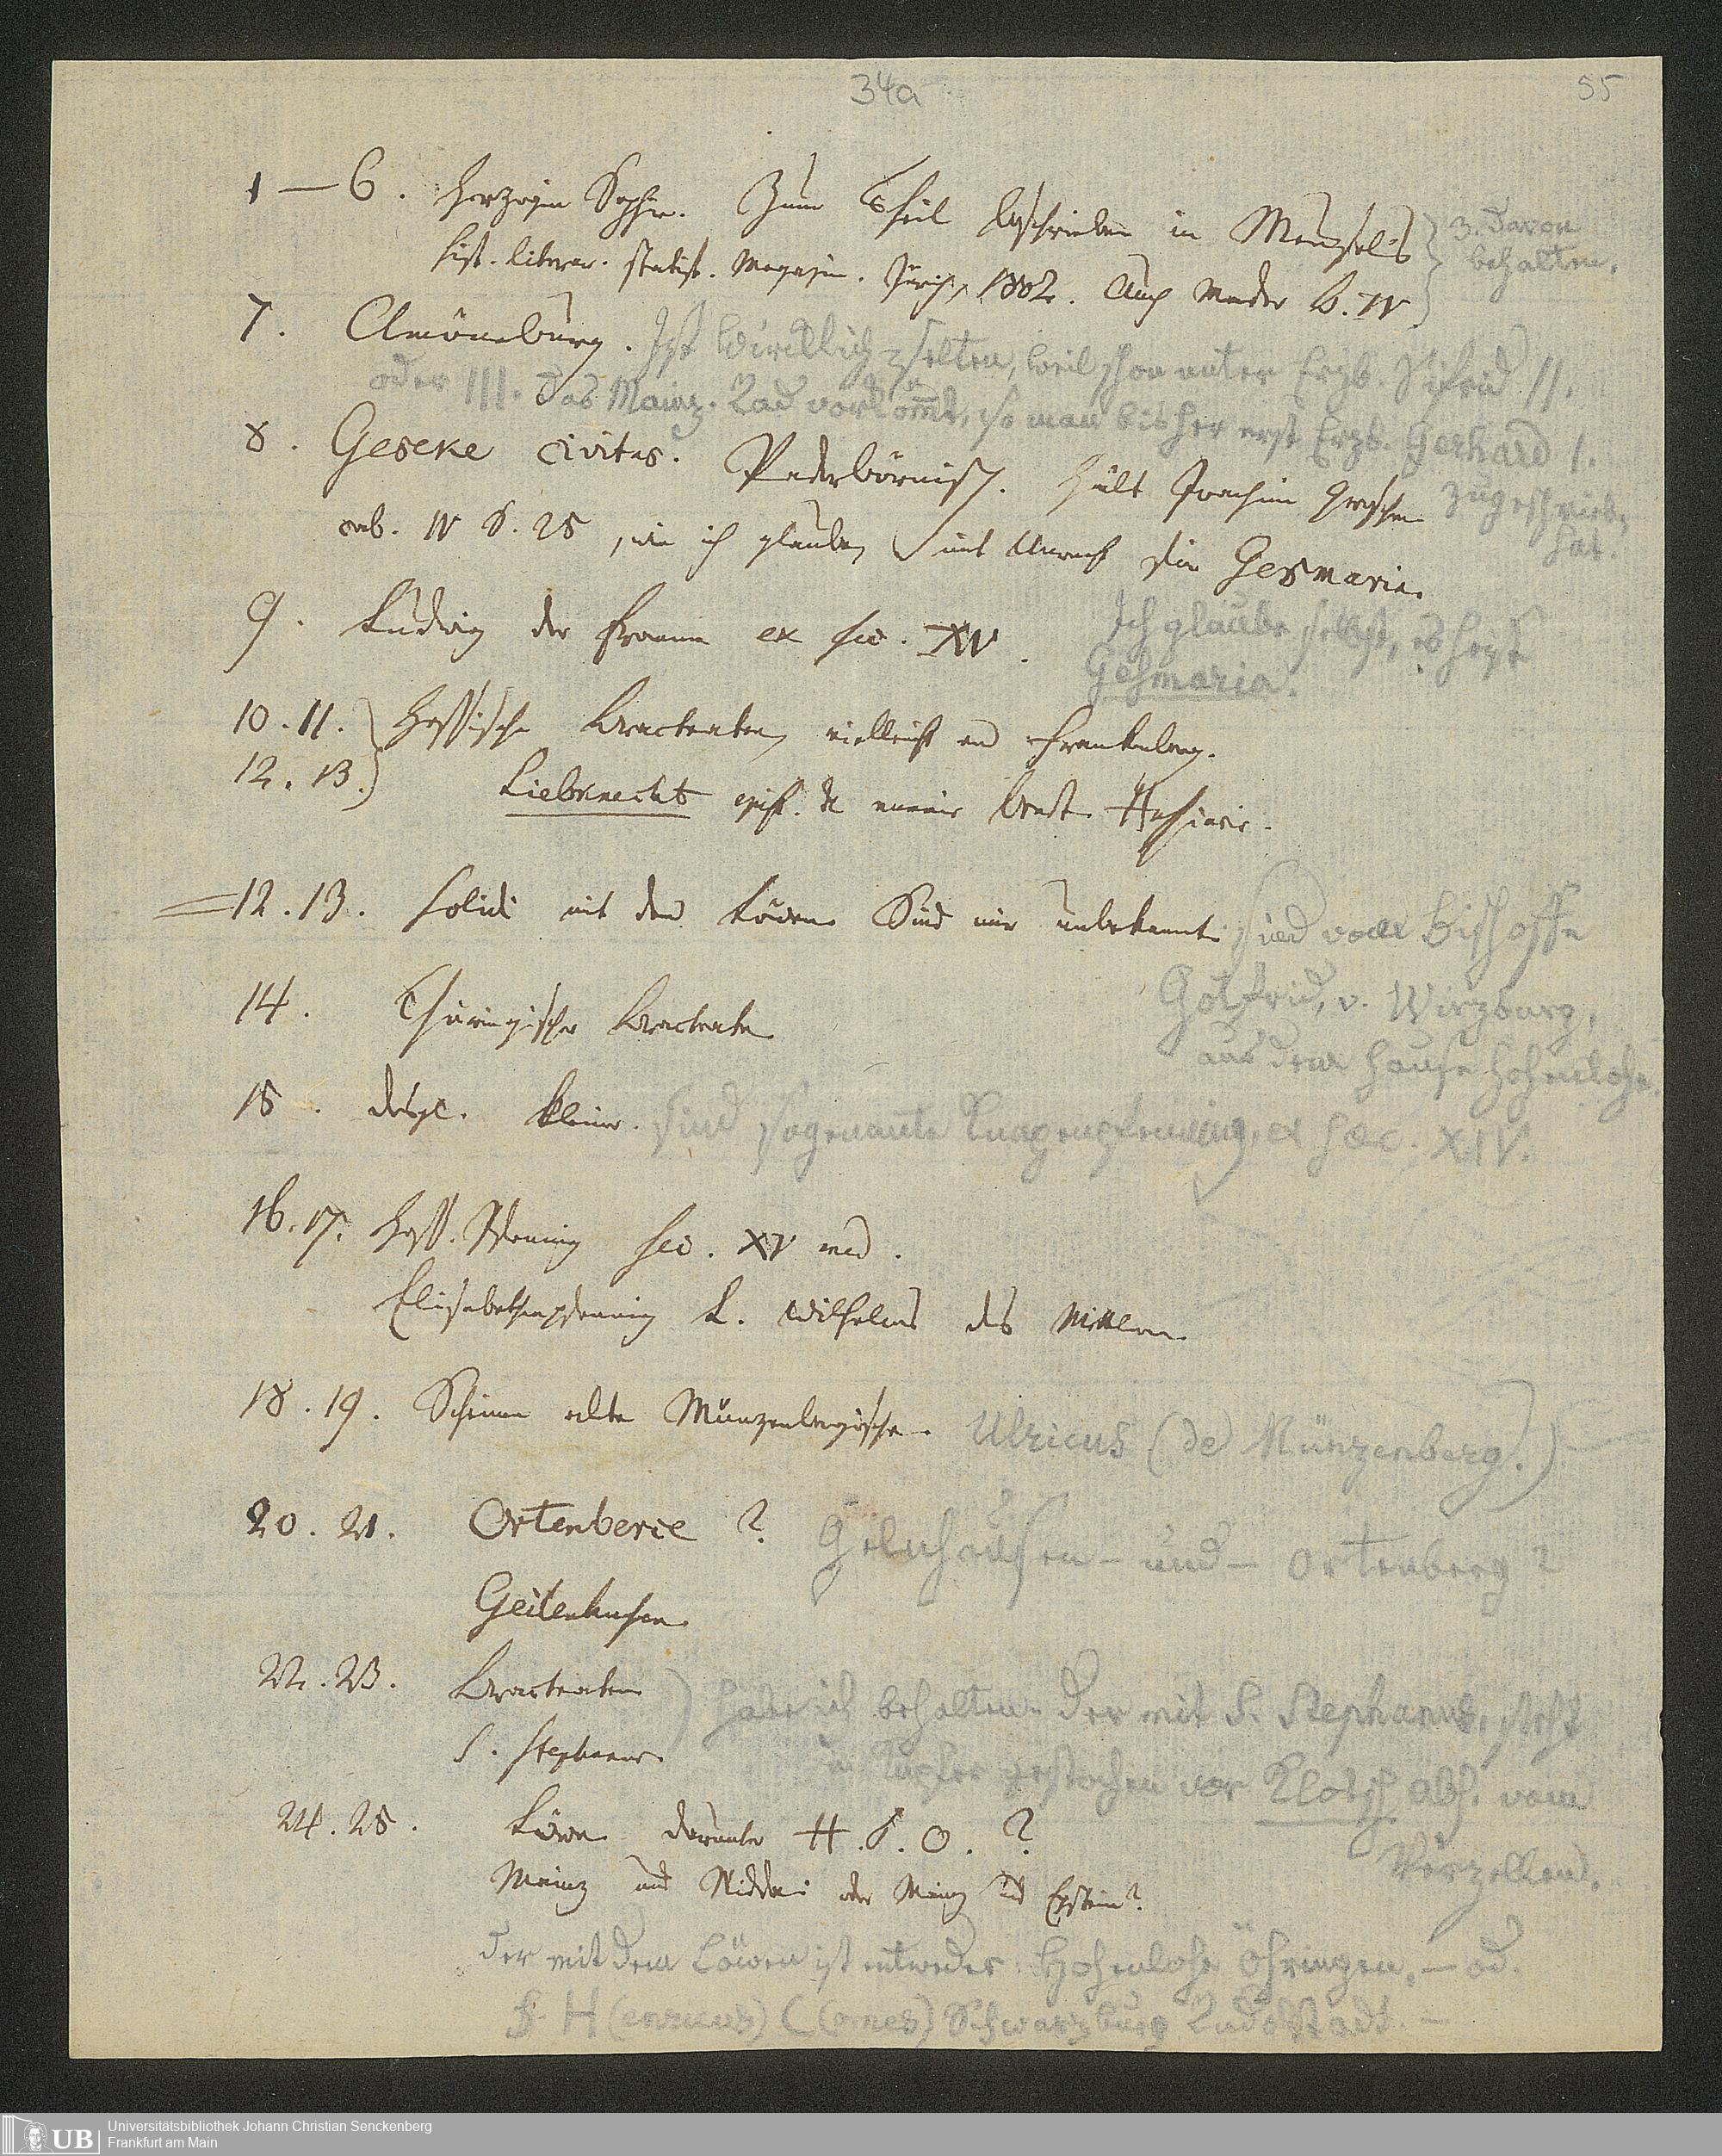 34a
55
1 – 6. Herzogin Sophie. Zum Theil beschrieben in Meusels
hist. literar. statist. Magazin. Zürich, 1802. Auch Mader B. IV
3. Davon
behalten.
7. Amöneburg. Ist wirklich selten, weil schon unter Erzb. Sifrid II.
oder III. das Mainz. Rad vorkom̅t, so man bisher erst Erzb. Gerhard I.
zugeschrieb.
hat.
8. Geseke civitas. Paderbörnisch. Hält Joachim Groschen
cab. IV S. 25, wie ich glaube, mit Unrecht für Gesmaria.
9. Ludwig der Fromme ex sec. XV.
Ich glaube selbst, es heist
Gesmaria.
10.11. Hessische Bracteaten, vielleicht aus Frankenberg.
12.13. Liebknecht epist. de numis bract. Hassiacis.
12.13. Solidi mit dem Löwen. Sind mir unbekannt. sind vom Bischoffe
Gotfrid, v. Wirzburg,
aus dem Hause Hohenlohe.
14. Thüringischer Bracteate
15. desgl. kleiner. sind sogenante Knapenpfenning, ex sec. XIV.
16.17. Hess. Pfenning sec. XV med.
Elisabethenpfennig L. Wilhelms des Mittlern.
18.19. Scheinen alte Münzenbergische. Ulricus (de Münzenberg.)
20.21. Ortenberce? Gelnhausen – und – Ortenberg?
Geilenhusen.
22.23. Bracteaten
S. Stephanus.
habe ich behalten. Der mit S. Stephanus, steht
in Kupfer gestochen vor Klotzsch Abh. vom
Verzellen.
24.25. Löwe darunter H.S.O.?
Mainz und Nidda: oder Mainz und Epstein?
Der mit dem Löwen ist entweder Hohenlohe Öhringen, – od.
H (enricus) C (omes) Schwarzburg Rudolstadt. –
UB
Universitätsbibliothek Johann Christian Senckenberg
Frankfurt am Main